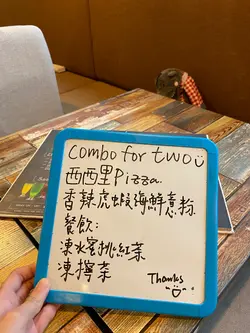 combo for two
西西里pizza
香辣虎蝦海鮮意粉
餐飲:
凍水蜜桃紅茶
凍檸茶
Thanks